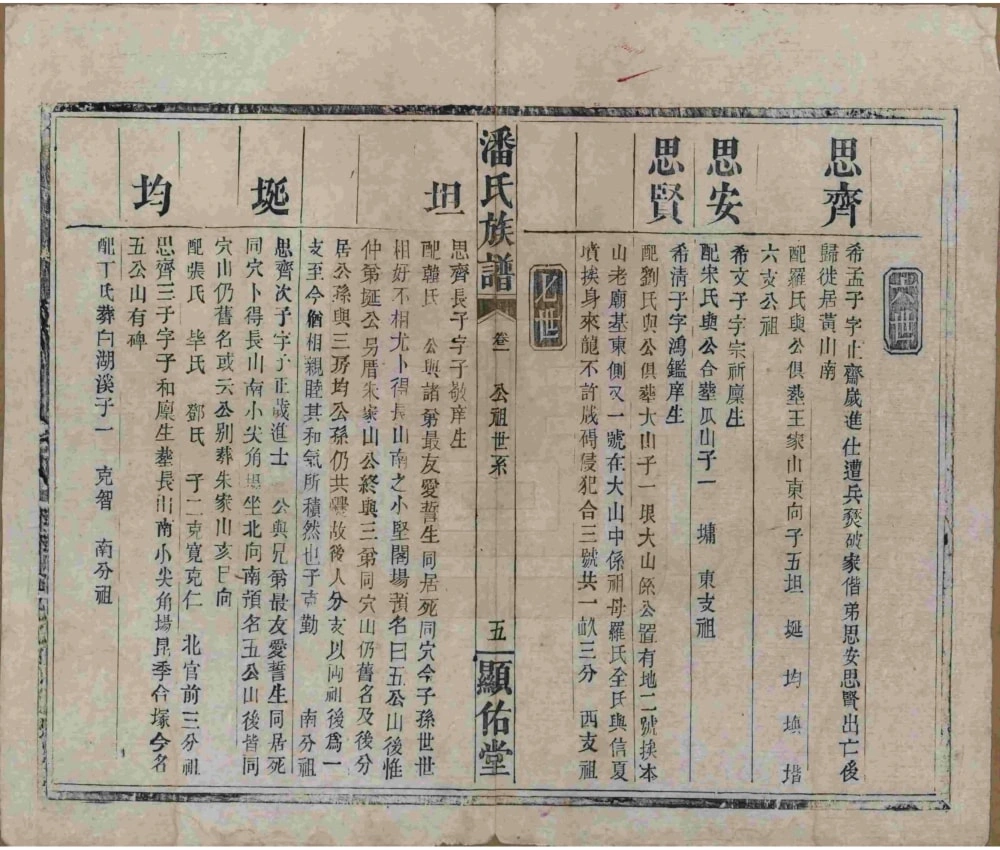 六世
思齊
希孟子字止齋歲進仕遭兵燹破家偕弟思安思賢出亡後
歸徙居黃山南
配羅氏與公俱塟王家山東向子五坦 埏 均 堧 堦
六支公祖
思安
希文子字宗祈廩生
配宋氏與公合塟瓜山子一 墉 東支祖
思賢
希淸子字鴻鑑庠生
配劉氏與公俱塟大山子一垠大山係公置有地二號挨本
山老廟基東側又一號在大山中係祖母羅氏全氏與信夏
墳挨身來龍不許戕碍侵犯合三號共一畝三分 西支祖
七世
潘氏族譜
卷一 公祖世系
五
顯佑堂
坦
思齊長子字子敬庠生
配韓氏 公與諸弟最友愛誓生同居死同穴今子孫世世
相好不相尤卜得長山南之小堅閣場預名曰五公山後惟
仲弟埏公另厝朱家山公終與三弟同穴山仍舊名及後分
居公孫與三房均公孫仍共爨故後人分支以兩祖後爲一
支至今猶相親睦其和氣所積然也子克勤 南分祖
埏
思齊次子字子正歲進士 公與兄弟最友愛誓生同居死
同穴卜得長山南小尖角場坐北向南預名五公山後皆同
穴山仍舊名或云公别葬朱家山亥巳向
配張氏 毕氏 鄧氏 子二克寬克仁 北官前三分祖
均
思齊三子字子和廩生塟長山南小尖角場昆季合塚今名
五公山有碑
配丁氏葬白湖溪子一 克智 南分祖